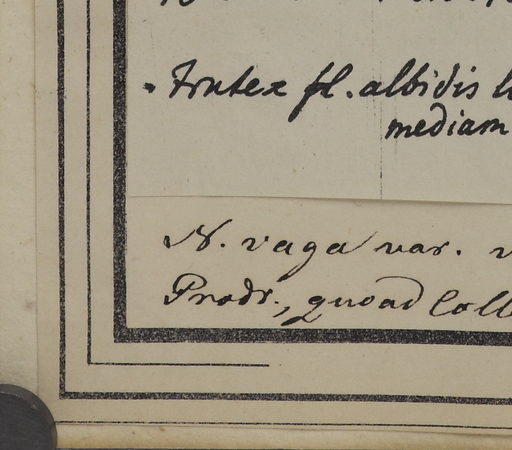 frutex fl. albidis
mediam
N. vaga var.
Prodr., quoad Coll